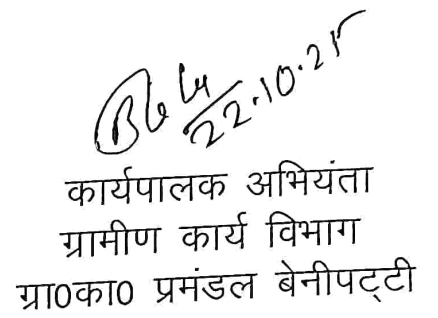 22.10.25
कार्यपालक अभियंता
ग्रामीण कार्य विभाग
ग्रा0का0 प्रमंडल बेनीपट्टी